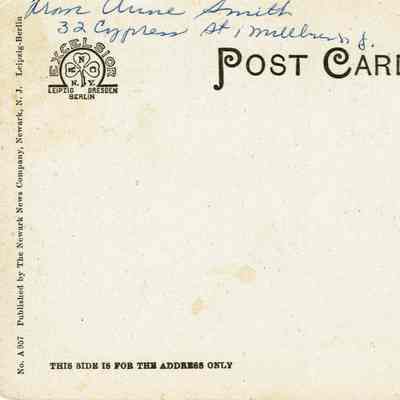 From Anne Smith
32 Cypress St, Millburn, J.
POST CARD
EXCELSIOR
N N C
N.Y.
LEIPZIG DRESDEN
BERLIN
No. A 957 Published by The Newark News Company, Newark, N. J. Leipzig-Berlin
THIS SIDE IS FOR THE ADDRESS ONLY